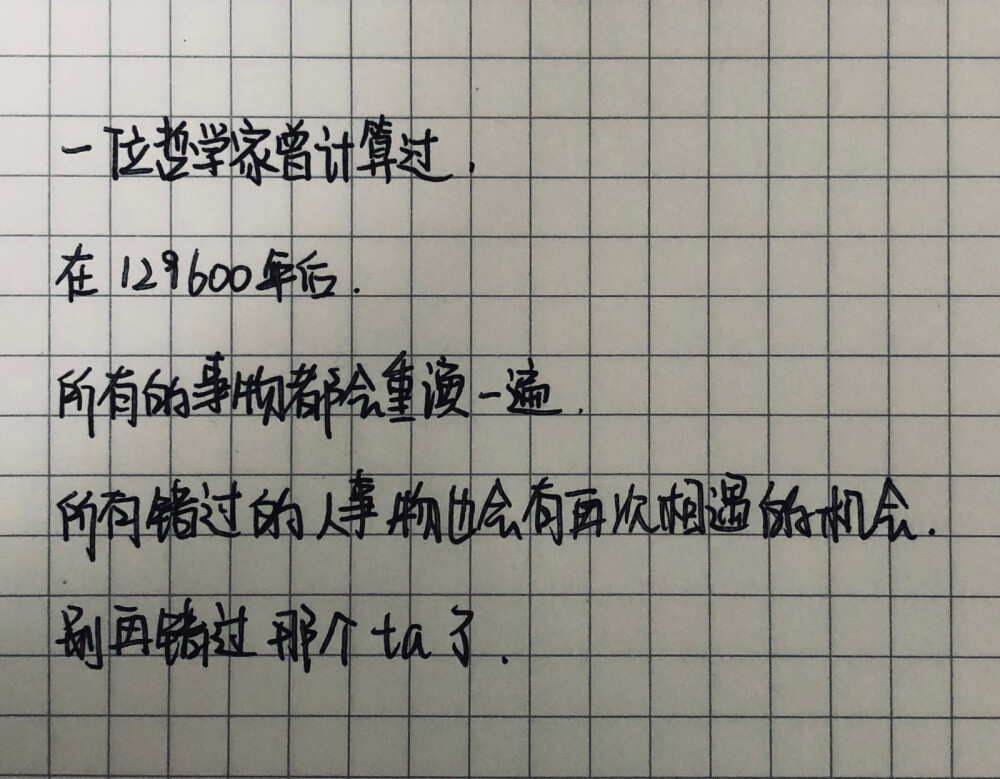 一位哲学家曾计算过.
在129600年后.
所有的事物都会重演一遍.
所有错过的人事物也会有再次相遇的机会.
别再错过那个ta了.